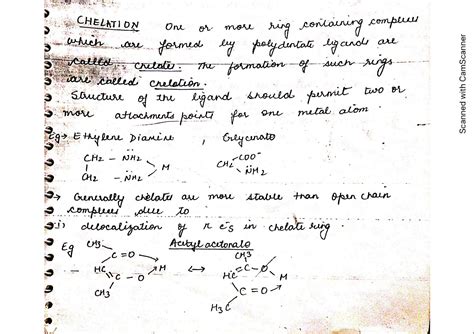 CHELATION One or more ring containing complexes
which are formed by polydentate ligands are
called chelate. The formation of such rings
are called chelation.
Structure of the ligand should permit two or
more attachments points for one metal atom.
Eg → Ethylene Diamine , Glycenato
CH2 - NH2
CH2 - NH2
M
CH2
COO-
NH2
→ Generally chelates are more stable than open chain
complexes due to
i) delocalization of π e-s in chelate ring.
Eg Acetyl acetonato
CH3
C = O → M
HC
C - O
CH3
↔
CH3
C - O
HC M
C = O →
H3C
Scanned with CamScanner